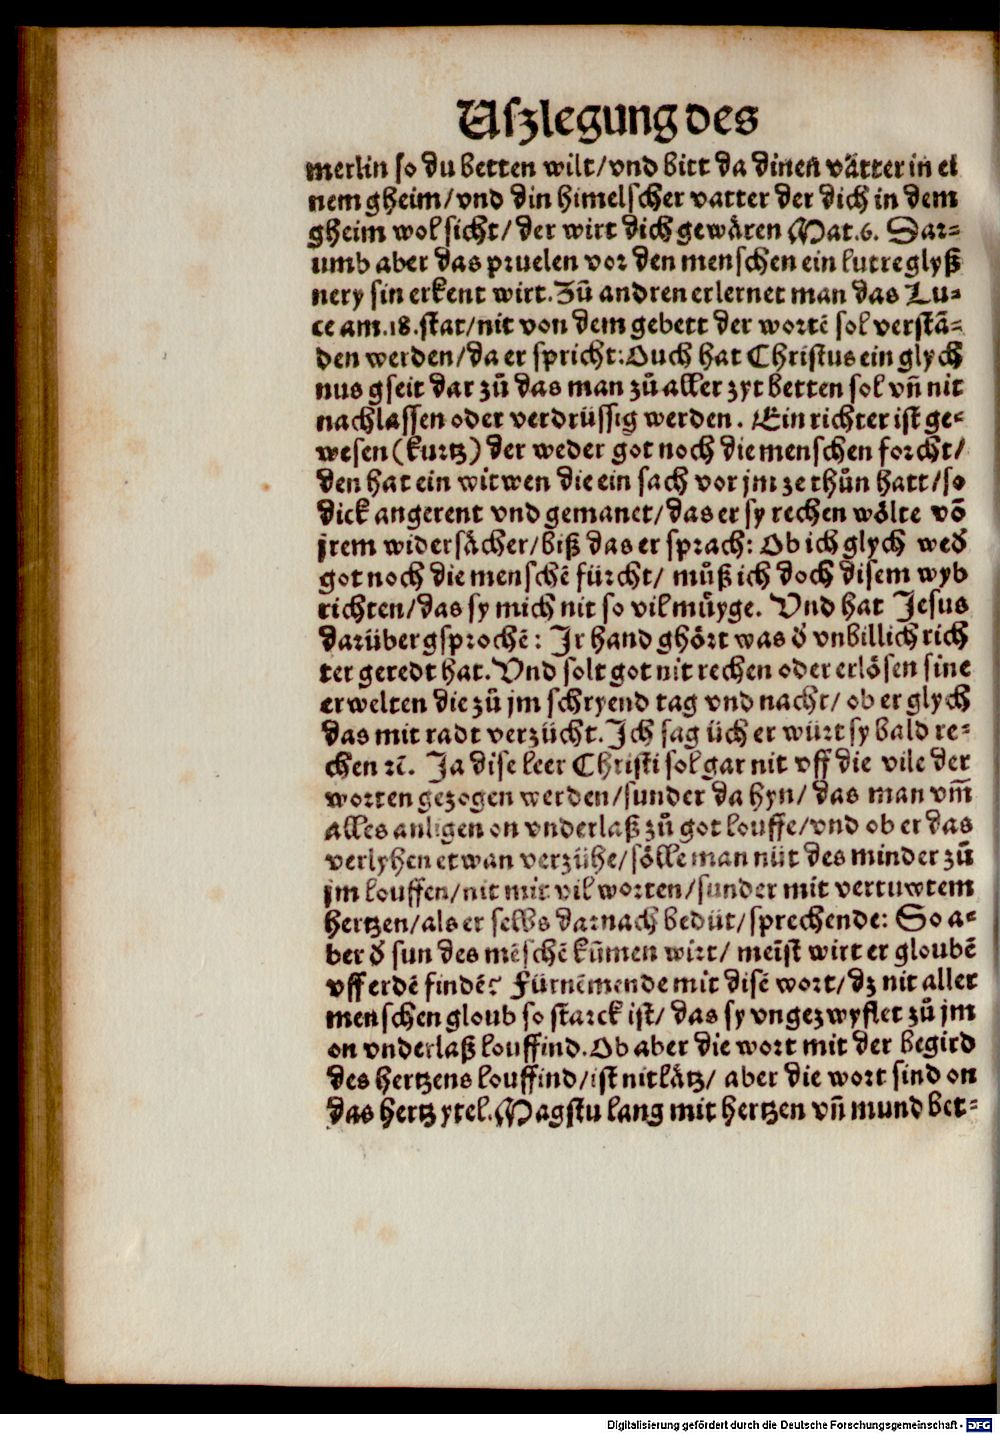 Uſzlegung des
merlin ſo du betten wilt/vnd bitt da dinen vätter in ei
nem gheim/vnd din himelſcher vatter der dich in dem
gheim wol ſicht/der wirt dich gewären Mat.6. Dar⸗
umb aber das pruelen vor den menſchen ein lutre glyß
nery ſin erkent wirt. Zů andren erlernet man das Lu⸗
ce am.18.ſtat/nit von dem gebett der wortē ſol verſtā⸗
den werden/da er ſpricht: Ouch hat Chriſtus ein glych
nus gſeit dar zů das man zů aller zyt betten ſol vn̄ nit
nachlaſſen oder verdrüſſig werden. Ein richter iſt ge⸗
weſen (kurtz) der weder got noch die menſchen forcht/
den hat ein witwen die ein ſach vor jm ze thůn hatt/ſo
dick angerent vnd gemanet/das er ſy rechen wölte vō
jrem widerſächer/biß das er ſprach: Ob ich glych wed̕
got noch die menſchē fürcht/ můß ich doch diſem wyb
richten/das ſy mich nit ſo vil müyge. Vnd hat Jeſus
darüber gſprochē: Jr hand ghört was d̕ vnbillich rich
ter geredt hat. Vnd ſolt got nit rechen oder erlöſen ſine
erwelten die zů jm ſchryend tag vnd nacht/ ob er glych
das mit radt verzücht. Jch ſag üch er würt ſy bald re⸗
chen ꝛc̄. Ja diſe leer Chriſti ſol gar nit vff die vile der
worten gezogen werden/ſunder da hyn/ das man vm̄
alles anligen on vnderlaß zů got louffe/vnd ob er das
verlyhen etwan verzühe/ſölle man nüt des minder zů
jm louffen/nit mit vil worten/ſunder mit vertuwtem
hertzen/als er ſelbs darnach bedüt/ſprechende: So a⸗
ber d̕ ſun des mēſchē kūmen wirt/ meīſt wirt er gloubē
vff erdē findē? Fürnēmende mit diſē wort/dz nit aller
menſchen gloub ſo ſtarck iſt/ das ſy vngezwyflet zů jm
on vnderlaß louffind. Ob aber die wort mit der begird
des hertzens louffind/iſt nit lätz/ aber die wort ſind on
das hertz ytel. Magſtu lang mit hertzen vn̄ mund bet⸗
Digitalisierung gefördert durch die Deutsche Forschungsgemeinschaft - DFG